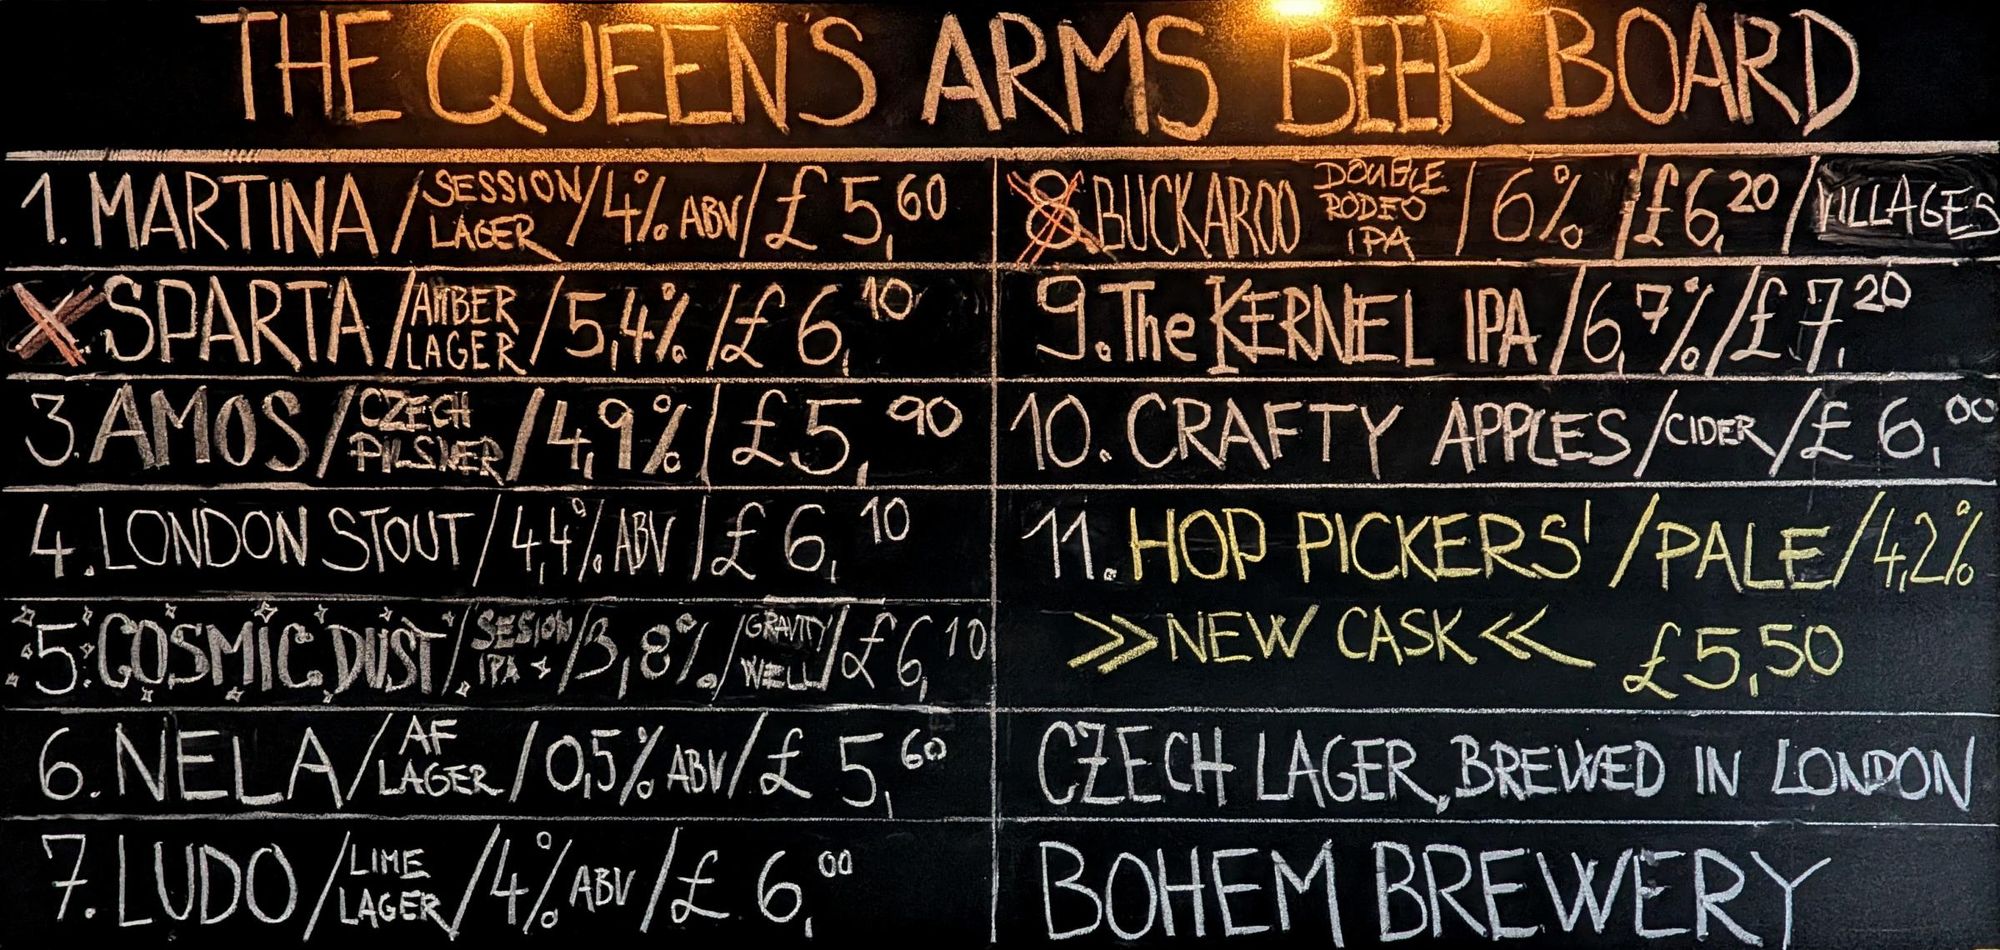 THE QUEEN'S ARMS BEER BOARD
1. MARTINA / SESSION LAGER / 4% ABV / £5,60
SPARTA / AMBER LAGER / 5,4% / £6,10
3. AMOS / CZECH PILSNER / 4,9% / £5,90
4. LONDON STOUT / 4,4% ABV / £6,10
5. COSMIC DUST / SESION IPA / 3,8% / GRAVITY WELL / £6,10
6. NELA / AF LAGER / 0,5% ABV / £5,60
7. LUDO / LIME LAGER / 4% ABV / £6,00
8 BUCKAROO DOUBLE RODEO IPA / 6% / £6,20 / VILLAGES
9. The KERNEL IPA / 6,7% / £7,20
10. CRAFTY APPLES / CIDER / £6,00
11. HOP PICKERS' / PALE / 4,2%
>> NEW CASK << £5,50
CZECH LAGER, BREWED IN LONDON
BOHEM BREWERY